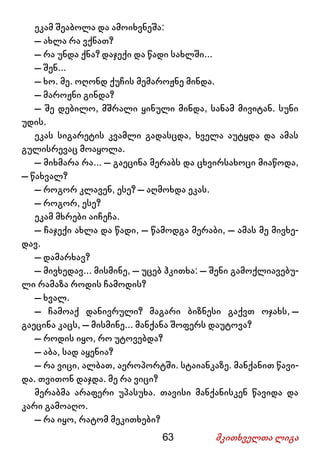 ეკამ შეაბოლა და ამოიხვნეშა:
— ახლა რა ვქნათ?
— რა უნდა ქნა? დაჯექი და წადი სახლში...
— შენ...
— ხო. მე. ოღონდ ქუჩის მემაროჟნე მინდა.
— მაროჟნი გინდა?
— შე დებილო, მშრალი ყინული მინდა, სანამ მივიტან. სუნი
უდის.
ეკას სიგარეტის კვამლი გადასცდა, ხველა აუტყდა და ამას
გულისრევაც მოაყოლა.
— მიხმარა რა... — გაეცინა მერაბს და ცხვირსახოცი მიაწოდა,
— წახვალ?
— როგორ კლავენ, ესე? — აღმოხდა ეკას.
— როგორ, ესე?
ეკამ მხრები აიჩეჩა.
— ჩაჯექი ახლა და წადი, — წამოდგა მერაბი, — ამას მე მივხე-
დავ.
— დამარხავ?
— მივხედავ... მისმინე, — უცებ ჰკითხა: — შენი გამოქლიავებუ-
ლი რამაზა როდის ჩამოდის?
— ხვალ.
— ჩამოაქ დანივრული? მაგარი ბიზნესი გაქვთ ოჯახს, —
გაეცინა კაცს, — მისმინე... მანქანა შოფერს დაუტოვა?
— როდის იყო, რო უტოვებდა?
— აბა, სად აყენია?
— რა ვიცი, ალბათ, აეროპორტში. სტაიანკაზე. მანქანით წავი-
და. თვითონ დაჯდა. მე რა ვიცი?
მერაბმა არაფერი უპასუხა. თავისი მანქანისკენ წავიდა და
კარი გამოაღო.
— რა იყო, რატომ მეკითხები?
63 მკითხველთა ლიგა